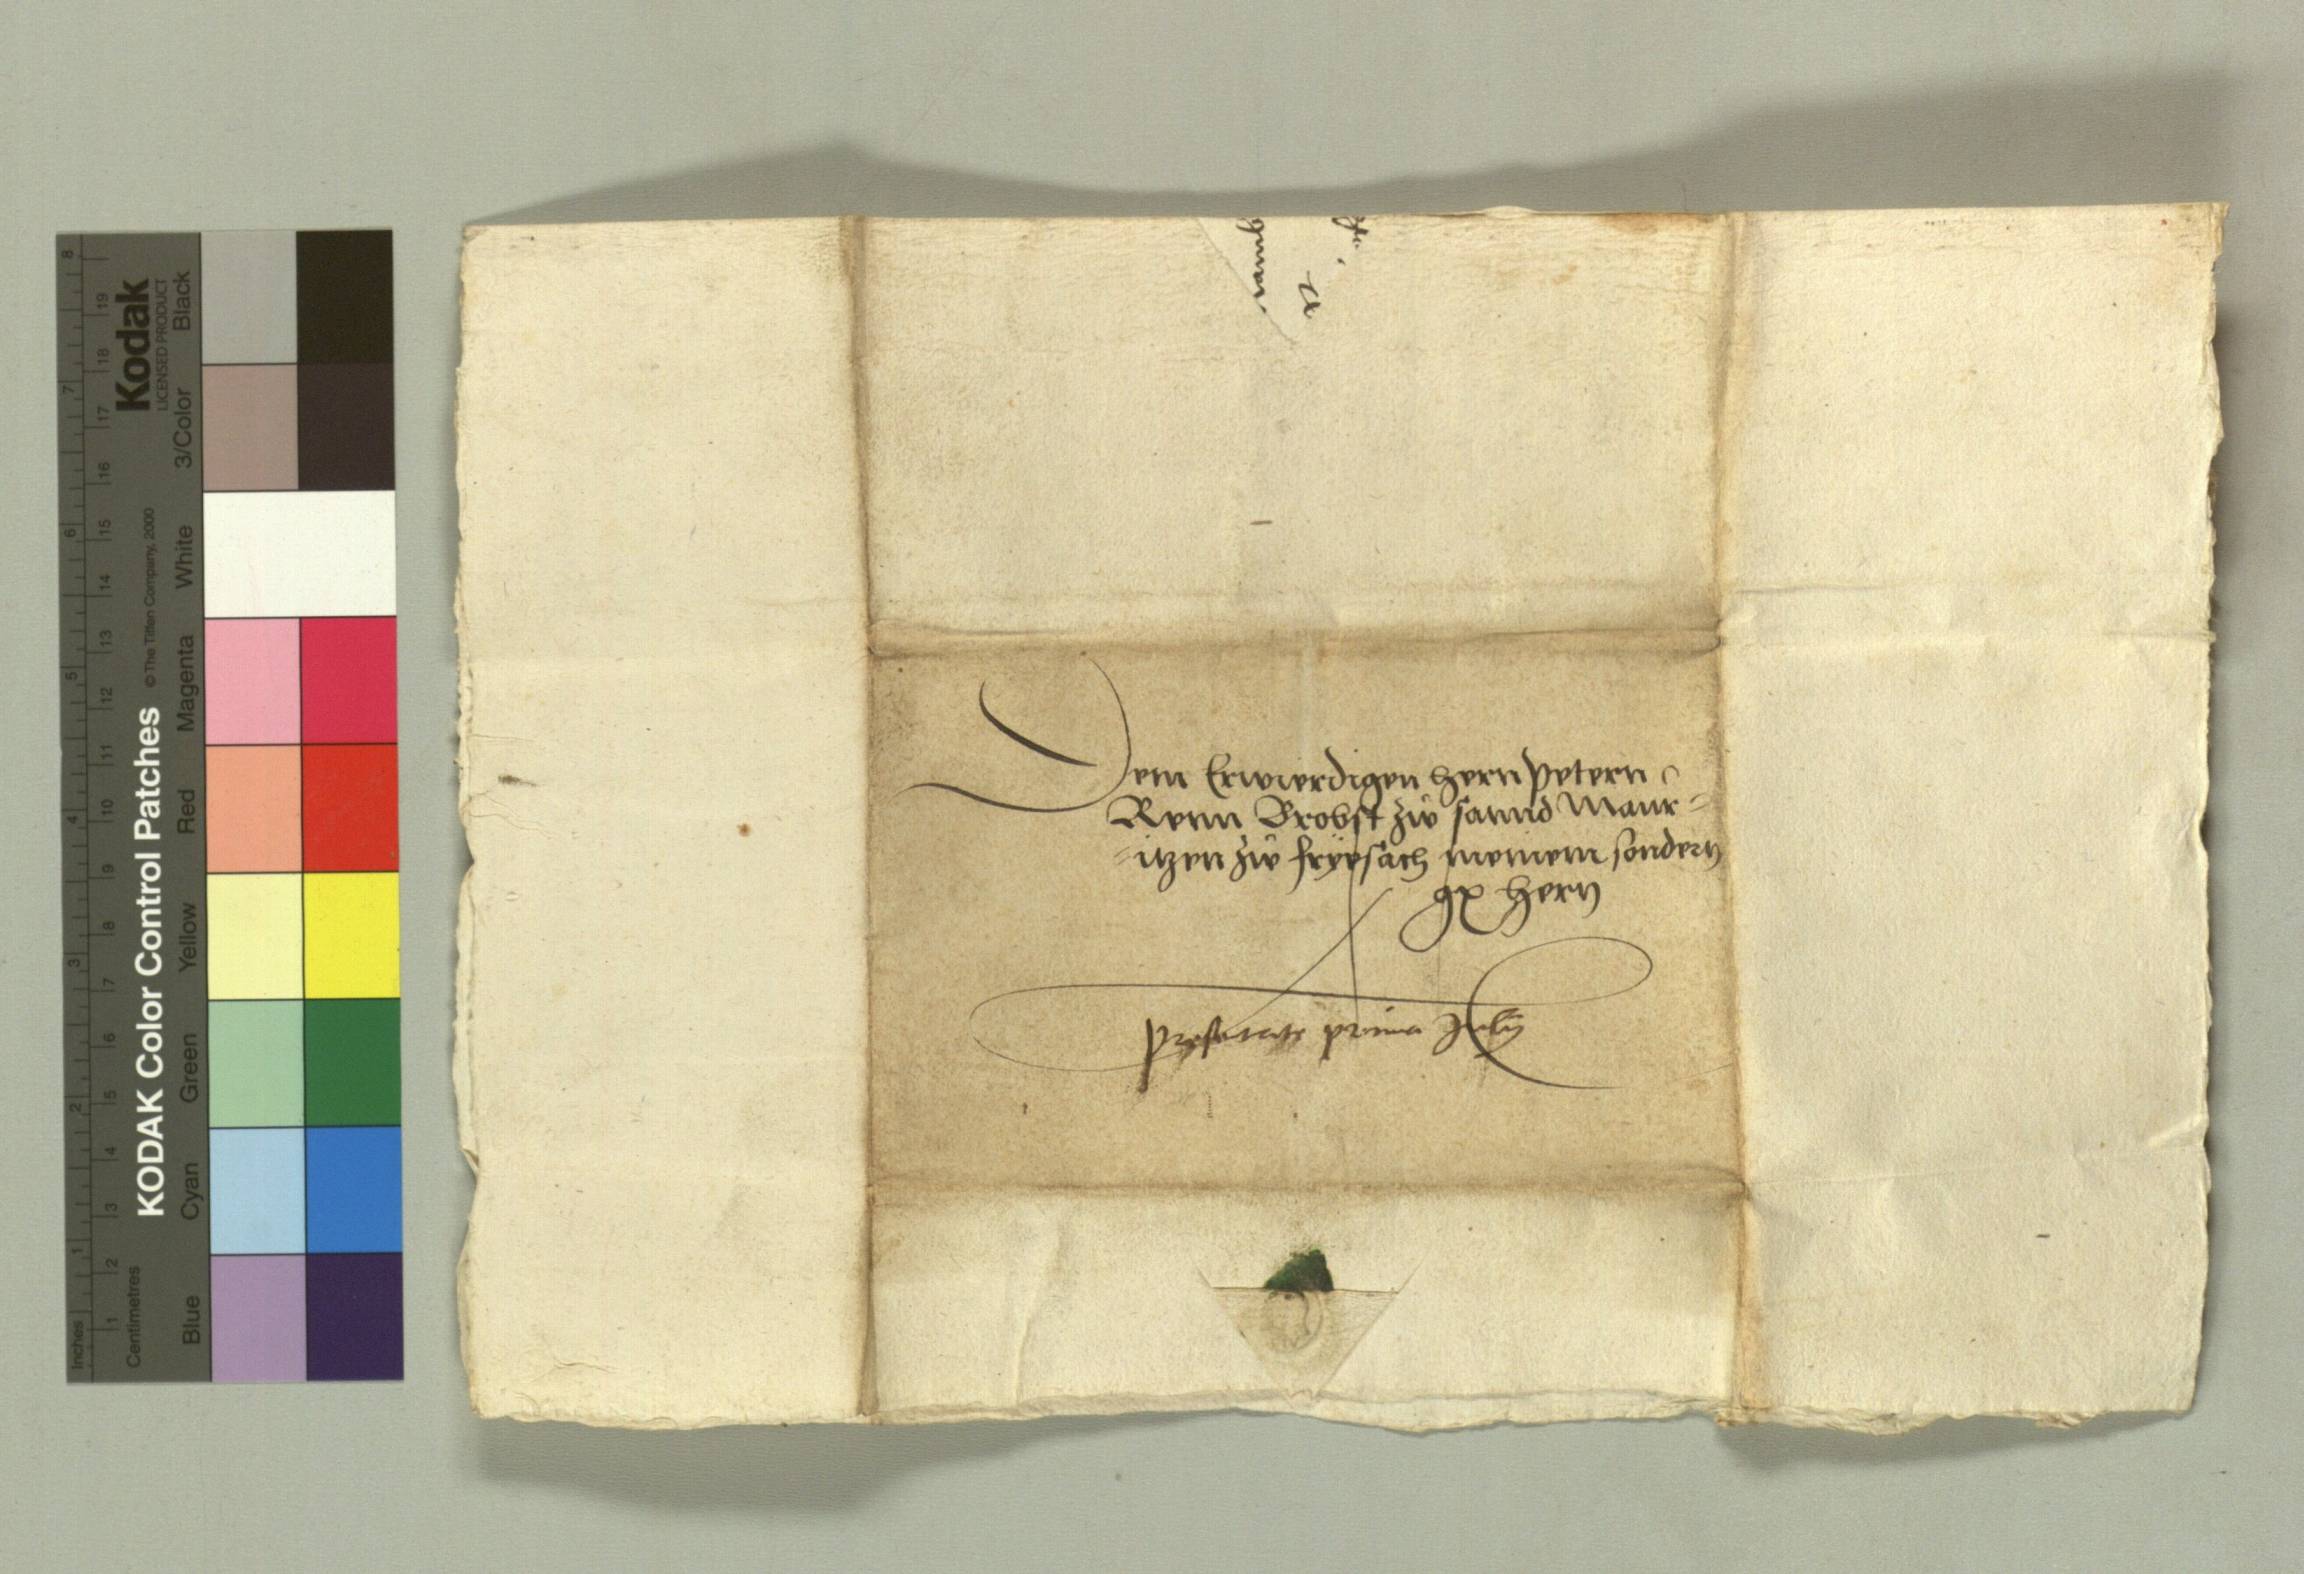 Dem Erwierdigen Hern Petern
Renn Brobst zw sannd Maur-
-itzen zw fryesach meinem sondern
gn Hern
presentate prima July
KODAK Color Control Patches
© The Tiffen Company, 2000
Kodak
LICENSED PRODUCT
Inches 1 2 3 4 5 6 7 8
Centimetres 1 2 3 4 5 6 7 8 9 10 11 12 13 14 15 16 17 18 19
Blue Cyan Green Yellow Red Magenta White 3/Color Black